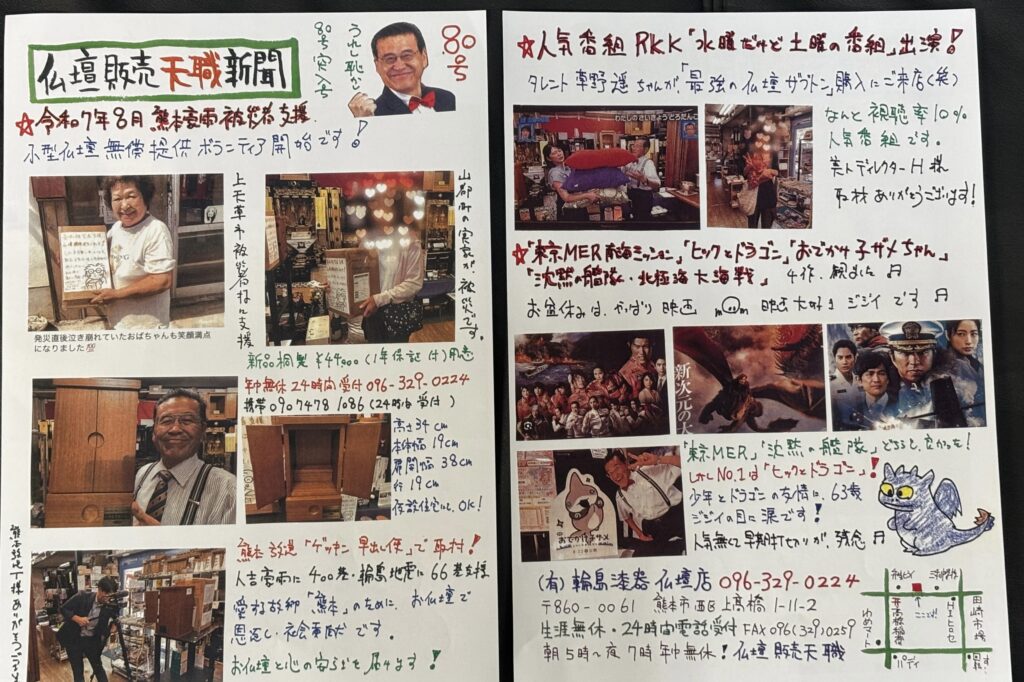 仏壇販売天職新聞
80号突入号
うれし恥かし
80号
☆令和7年8月 熊本豪雨被災者支援
小型仏壇無償提供ボランティア開始です!
上天草市被災者様に支援
山都町の実家が被災です。
発災直後泣き崩れていたおばちゃんも笑顔満点
になりました💯
新品桐製 ¥44,000(1年保証付)用意
年中無休24時間受付 096-329-0224
携帯 090 7478 1086 (24時間受付)
高さ34cm
本体幅19cm
扉開幅38cm
行19cm
仮設住宅にも、OK!
熊本放送「ゲツキン早出し便」で取材!
人吉豪雨に400基・輪島地震に66基支援
愛する故郷「熊本」のために、お仏壇で
恩返し・社会貢献です。
お仏壇と心の安らぎを届けます!
☆人気番組RKK「水曜だけど土曜の番組」出演!
タレント草野遥ちゃんが、「最強の仏壇ザブトン」購入にご来店(笑)
わたしのさいきょうとろうだんご
なんと視聴率10%
人気番組です。
美人ディレクターH様
取材ありがとうございます!
☆「東京MER 南海ミッション」「ヒックとドラゴン」「おでかけ子ザメちゃん」
「沈黙の艦隊・北極海大海戦」 4作、観ました
お盆休みは、やっぱり映画 映画大好きジジイです
新次元の
「東京MER」「沈黙の艦隊」どちらも、良かった!
しかしNo.1は「ヒックとドラゴン」!
少年とドラゴンの友情に、63歳
ジジイの目に涙です!
人気無くて早期打切りが、残念
おでかけ子ザメ
(有)輪島漆器仏壇店 096-329-0224
〒860-0061 熊本市西区上高橋1-11-2
生涯無休・24時間電話受付 FAX 096(329)0259
朝5時〜夜7時 年中無休! 仏壇販売天職
ここだよ
高橋稲荷
田崎市場